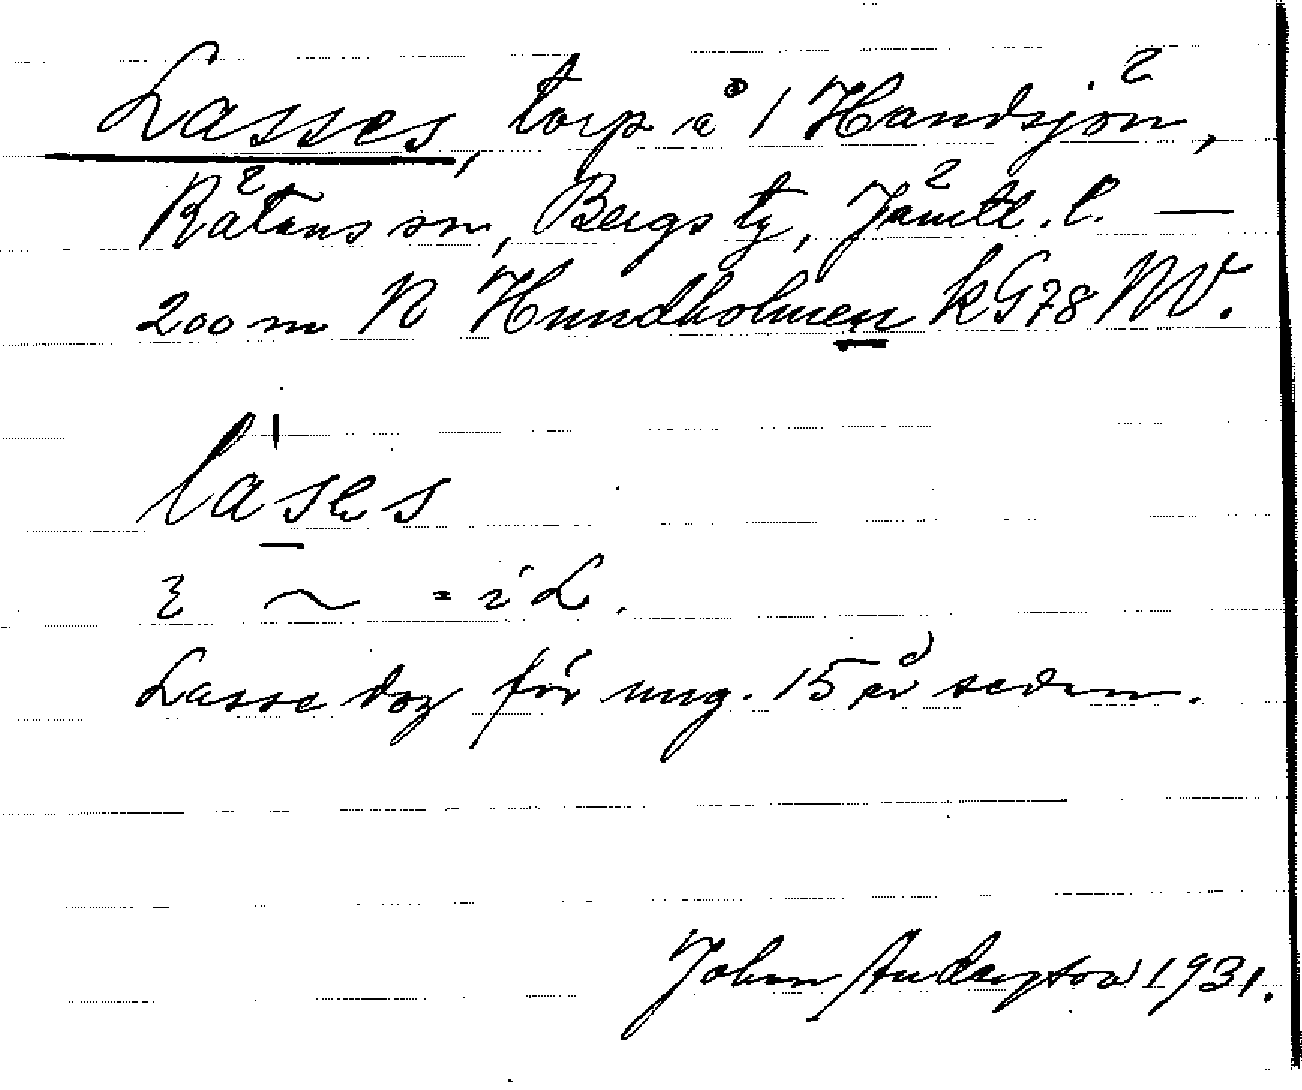 Lasses, torp å 1 Handsjön,
Rätans sn, Bergs tg, Jämtl. l. —
200 m N Hundholmen kG78 NV.
lases
= i L.
Lasse dog för ung. 15 år sedan.
John Andersson 1931.